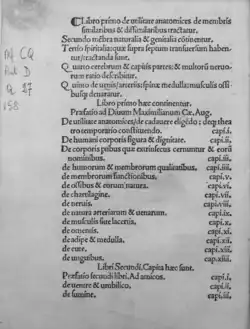 Libro primo de utilitate anatomices de membris
similaribus & dissimilaribus tractatur.
Secundo mēbra naturalia & genitalia cōtinentur.
Tertio spiritalia: quæ supra septum transuersum habentur/tractanda sunt.
Quarto cerebrum & capitis partes: & multorū neruorum ratio describitur.
Quinto de uenis/arteriis: spinæ medulla: musculis ossibusq; 
Libro primo hæc continentur.
Præfatio ad Diuum Maximilianum Cæ. Aug.
De utilitate anatomices/de cadauere eligēdo: deq; theatro temporario constituendo. capi.i.
De humani corporis figura & dignitate. capi.ii.
De corporis ptibus quæ extrinsecus cernuntur & eorū nominibus. capi.iii.
de humorum & membrorum qualitatibus. capi.iiii.
de membrorum functionibus. capi.v.
de ossibus & eorum natura. capi.vi.
de chartilagine. capi.vii.
de neruis. capi.viii.
de natura arteriarum & uenarum. capi.ix.
de musculis siue lacertis. capi.x.
de omentis. capi.xi.
de adipe & medulla. capi.xii.
de cute. capi.xiii.
de unguibus. cap.xiiii.
Libri Secundi, Capita hæc sunt.
Præfatio secundi libri, Ad amicos. capi.i.
de uentre & umbilico. capi.ii.
de sumine. capi.iii.
CQ
D
Q 27
158